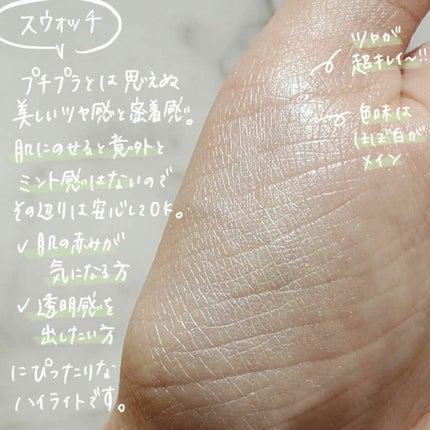 スウォッチ
プチプラとは思えぬ
美しいツヤ感と密着感。
肌にのせると意外と
ミント感はないので
その辺りは安心してOK。
✓肌の赤みが
気になる方
✓透明感を
出したい方
にぴったりな
ハイライトです。
ツヤが
超キレイ〜!!
色味は
ほぼ白が
メイン